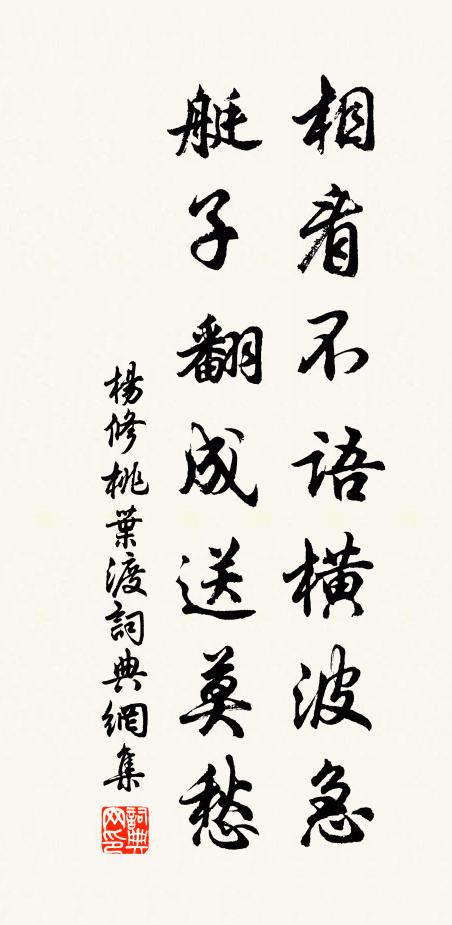 相看不語橫波急
艇子翻成送莫愁
楊修桃葉渡詞典網集
詞典網印